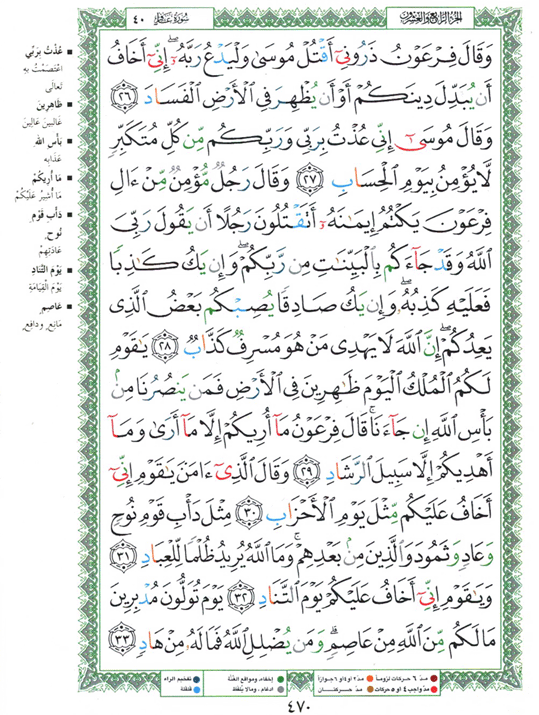 الجزء الرابع والعشرون
٤٠
سورة غافر
وَقَالَ فِرْعَوْنُ ذَرُونِىٓ أَقْتُلْ مُوسَىٰ وَلْيَدْعُ رَبَّهُۥٓ ۖ إِنِّىٓ أَخَافُ
أَن يُبَدِّلَ دِينَكُمْ أَوْ أَن يُظْهِرَ فِى ٱلْأَرْضِ ٱلْفَسَادَ ٢٦
وَقَالَ مُوسَىٰٓ إِنِّى عُذْتُ بِرَبِّى وَرَبِّكُم مِّن كُلِّ مُتَكَبِّرٍ
لَّا يُؤْمِنُ بِيَوْمِ ٱلْحِسَابِ ٢٧ وَقَالَ رَجُلٌ مُّؤْمِنٌ مِّنْ ءَالِ
فِرْعَوْنَ يَكْتُمُ إِيمَٰنَهُۥٓ أَتَقْتُلُونَ رَجُلًا أَن يَقُولَ رَبِّىَ
ٱللَّهُ وَقَدْ جَآءَكُم بِٱلْبَيِّنَٰتِ مِن رَّبِّكُمْ ۖ وَإِن يَكُ كَٰذِبًا
فَعَلَيْهِ كَذِبُهُۥ ۖ وَإِن يَكُ صَادِقًا يُصِبْكُم بَعْضُ ٱلَّذِى
يَعِدُكُمْ ۖ إِنَّ ٱللَّهَ لَا يَهْدِى مَنْ هُوَ مُسْرِفٌ كَذَّابٌ ٢٨ يَٰقَوْمِ
لَكُمُ ٱلْمُلْكُ ٱلْيَوْمَ ظَٰهِرِينَ فِى ٱلْأَرْضِ فَمَن يَنصُرُنَا مِنۢ
بَأْسِ ٱللَّهِ إِن جَآءَنَا ۚ قَالَ فِرْعَوْنُ مَآ أُرِيكُمْ إِلَّا مَآ أَرَىٰ وَمَآ
أَهْدِيكُمْ إِلَّا سَبِيلَ ٱلرَّشَادِ ٢٩ وَقَالَ ٱلَّذِىٓ ءَامَنَ يَٰقَوْمِ إِنِّىٓ
أَخَافُ عَلَيْكُم مِّثْلَ يَوْمِ ٱلْأَحْزَابِ ٣٠ مِثْلَ دَأْبِ قَوْمِ نُوحٍ
وَعَادٍ وَثَمُودَ وَٱلَّذِينَ مِنۢ بَعْدِهِمْ ۚ وَمَا ٱللَّهُ يُرِيدُ ظُلْمًا لِّلْعِبَادِ ٣١
وَيَٰقَوْمِ إِنِّىٓ أَخَافُ عَلَيْكُمْ يَوْمَ ٱلتَّنَادِ ٣٢ يَوْمَ تُوَلُّونَ مُدْبِرِينَ
مَا لَكُم مِّنَ ٱللَّهِ مِنْ عَاصِمٍ ۗ وَمَن يُضْلِلِ ٱللَّهُ فَمَا لَهُۥ مِنْ هَادٍ ٣٣
عُذْتُ بِرَبِّي
اعْتَصَمْتُ بِهِ
تَعَالَى
ظَاهِرِينَ
غَالِبِينَ عَالِينَ
بَأْسِ اللهِ
عَذَابِهِ
مَا أُرِيكُمْ
مَا أُشِيرُ عَلَيْكُمْ
دَأْبِ قَوْمِ
نُوحٍ
عَادَتِهِمْ
يَوْمَ التَّنَادِ
يَوْمَ الْقِيَامَةِ
عَاصِمٍ
مَانِعٍ وَدَافِعٍ
مدّ ٦ حركات لزوماً
مدّ ٢ أو ٤ أو ٦ جوازاً
إخفاء، ومواقع الغُنَّة
تفخيم الراء
مدّ واجب ٤ أو ٥ حركات
مدّ حركتان
ادغام، ومالا يُلفَظ
قلقلة
٤٧٠